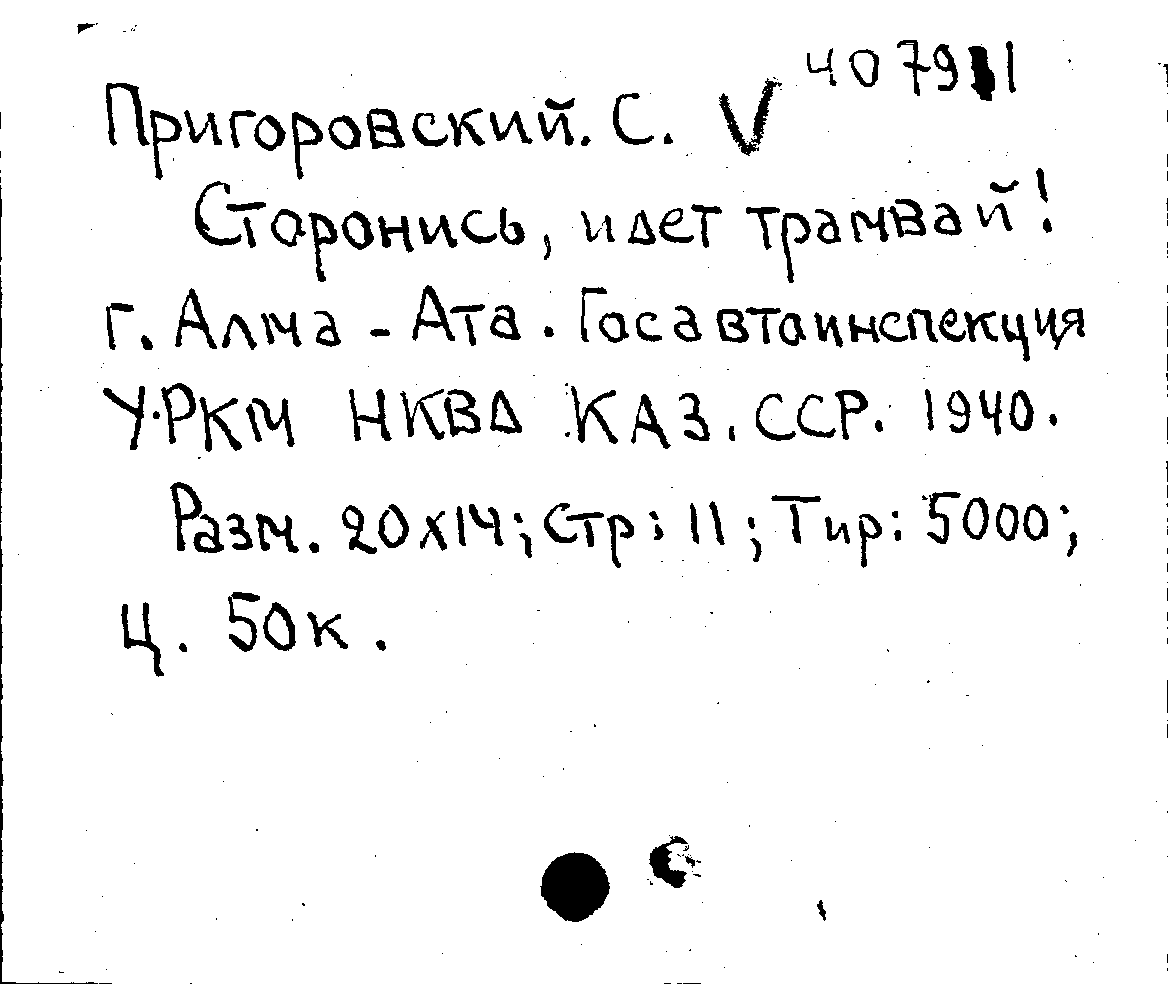 407911
Пригоровский. С. V
Сторонись, идет трамвай!
г. Алма - Ата. Госавтоинспекция
У.РКМ НКВД КАЗ. ССР. 1940.
Разм. 20х14; Стр: 11; Тир: 5000;
Ц. 50к.